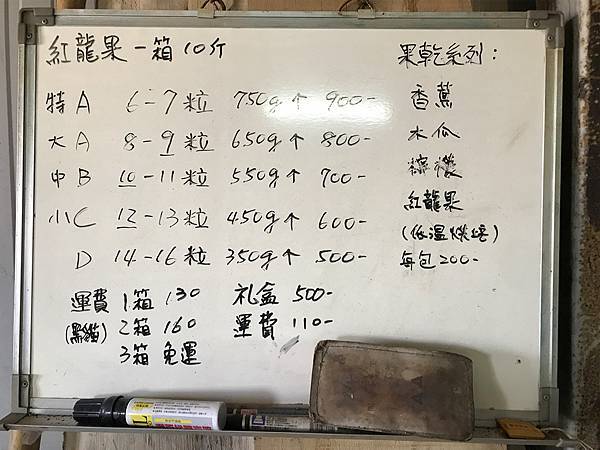 紅龍果 一箱 10斤
特A 6-7粒 750g↑ 900-
大A 8-9粒 650g↑ 800-
中B 10-11粒 550g↑ 700-
小C 12-13粒 450g↑ 600-
D 14-16粒 350g↑ 500-
運費 1箱 130
(黑貓) 2箱 160
3箱 免運
礼盒 500-
運費 110-
果乾系列：
香蕉
木瓜
檸檬
紅龍果
(低溫烘焙)
每包200-